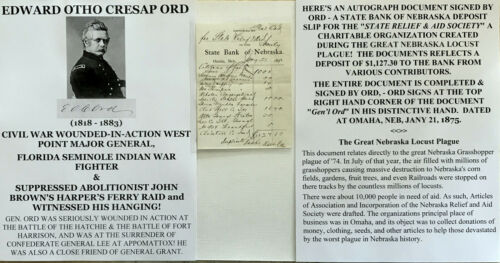 EDWARD OTHO CRESAP ORD
(1818 - 1883)
CIVIL WAR WOUNDED-IN-ACTION WEST
POINT MAJOR GENERAL,
FLORIDA SEMINOLE INDIAN WAR
FIGHTER
&
SUPPRESSED ABOLITIONIST JOHN
BROWN'S HARPER'S FERRY RAID and
WITNESSED HIS HANGING!
GEN. ORD WAS SERIOUSLY WOUNDED IN ACTION AT
THE BATTLE OF THE HATCHIE & THE BATTLE OF FORT
HARRISON, AND WAS AT THE SURRENDER OF
CONFEDERATE GENERAL LEE AT APPOMATTOX! HE
WAS ALSO A CLOSE FRIEND OF GENERAL GRANT.
State Bank of Nebraska.
HERE'S AN AUTOGRAPH DOCUMENT SIGNED
BY ORD - A STATE BANK OF NEBRASKA DEPOSIT
SLIP FOR THE "STATE RELIEF & AID SOCIETY" A
CHARITABLE ORGANIZATION CREATED
DURING THE GREAT NEBRASKA LOCUST
PLAGUE! THE DOCUMENTS REFLECTS A
DEPOSIT OF $1,127.30 TO THE BANK FROM
VARIOUS CONTRIBUTORS.
THE ENTIRE DOCUMENT IS COMPLETED &
SIGNED BY ORD, - ORD SIGNS AT THE TOP
RIGHT HAND CORNER OF THE DOCUMENT
"Gen'l Ord" IN HIS DISTINCTIVE HAND. DATED
AT OMAHA, NEB, JANY 21, 1875.
<<>>
The Great Nebraska Locust Plague
This document relates directly to the great Nebraska Grasshopper
plague of '74. In July of that year, the air filled with millions of
grasshoppers causing massive destruction to Nebraska's corn
fields, gardens, fruit trees, and even Railroads were stopped on
there tracks by the countless millions of locusts.
There was about 10,000 people in need of aid. As such, Articles
of Association and Incorporation of the Nebraska Relief and Aid
Society were drafted. The organizations principal place of
business was in Omaha, and its object was to collect donations of
money, clothing, seeds, and other articles to help those devastated
by the worst plague in Nebraska history.